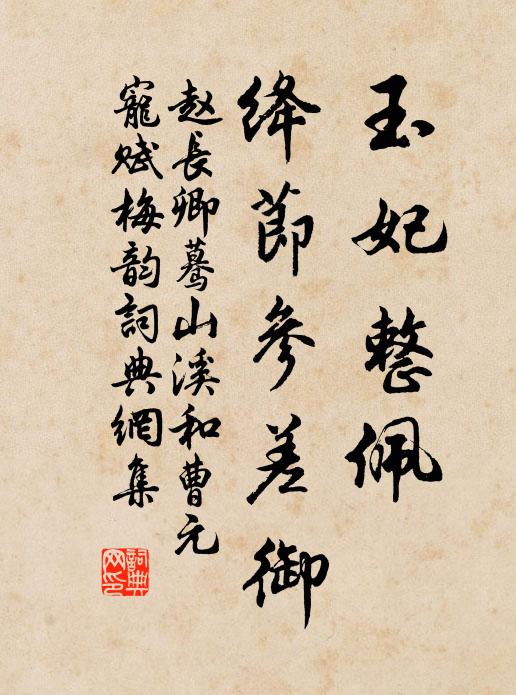 玉妃整佩
绛節參差御
赵長卿驀山溪和曹元
寵赋梅韵詞典網集
詞典网印